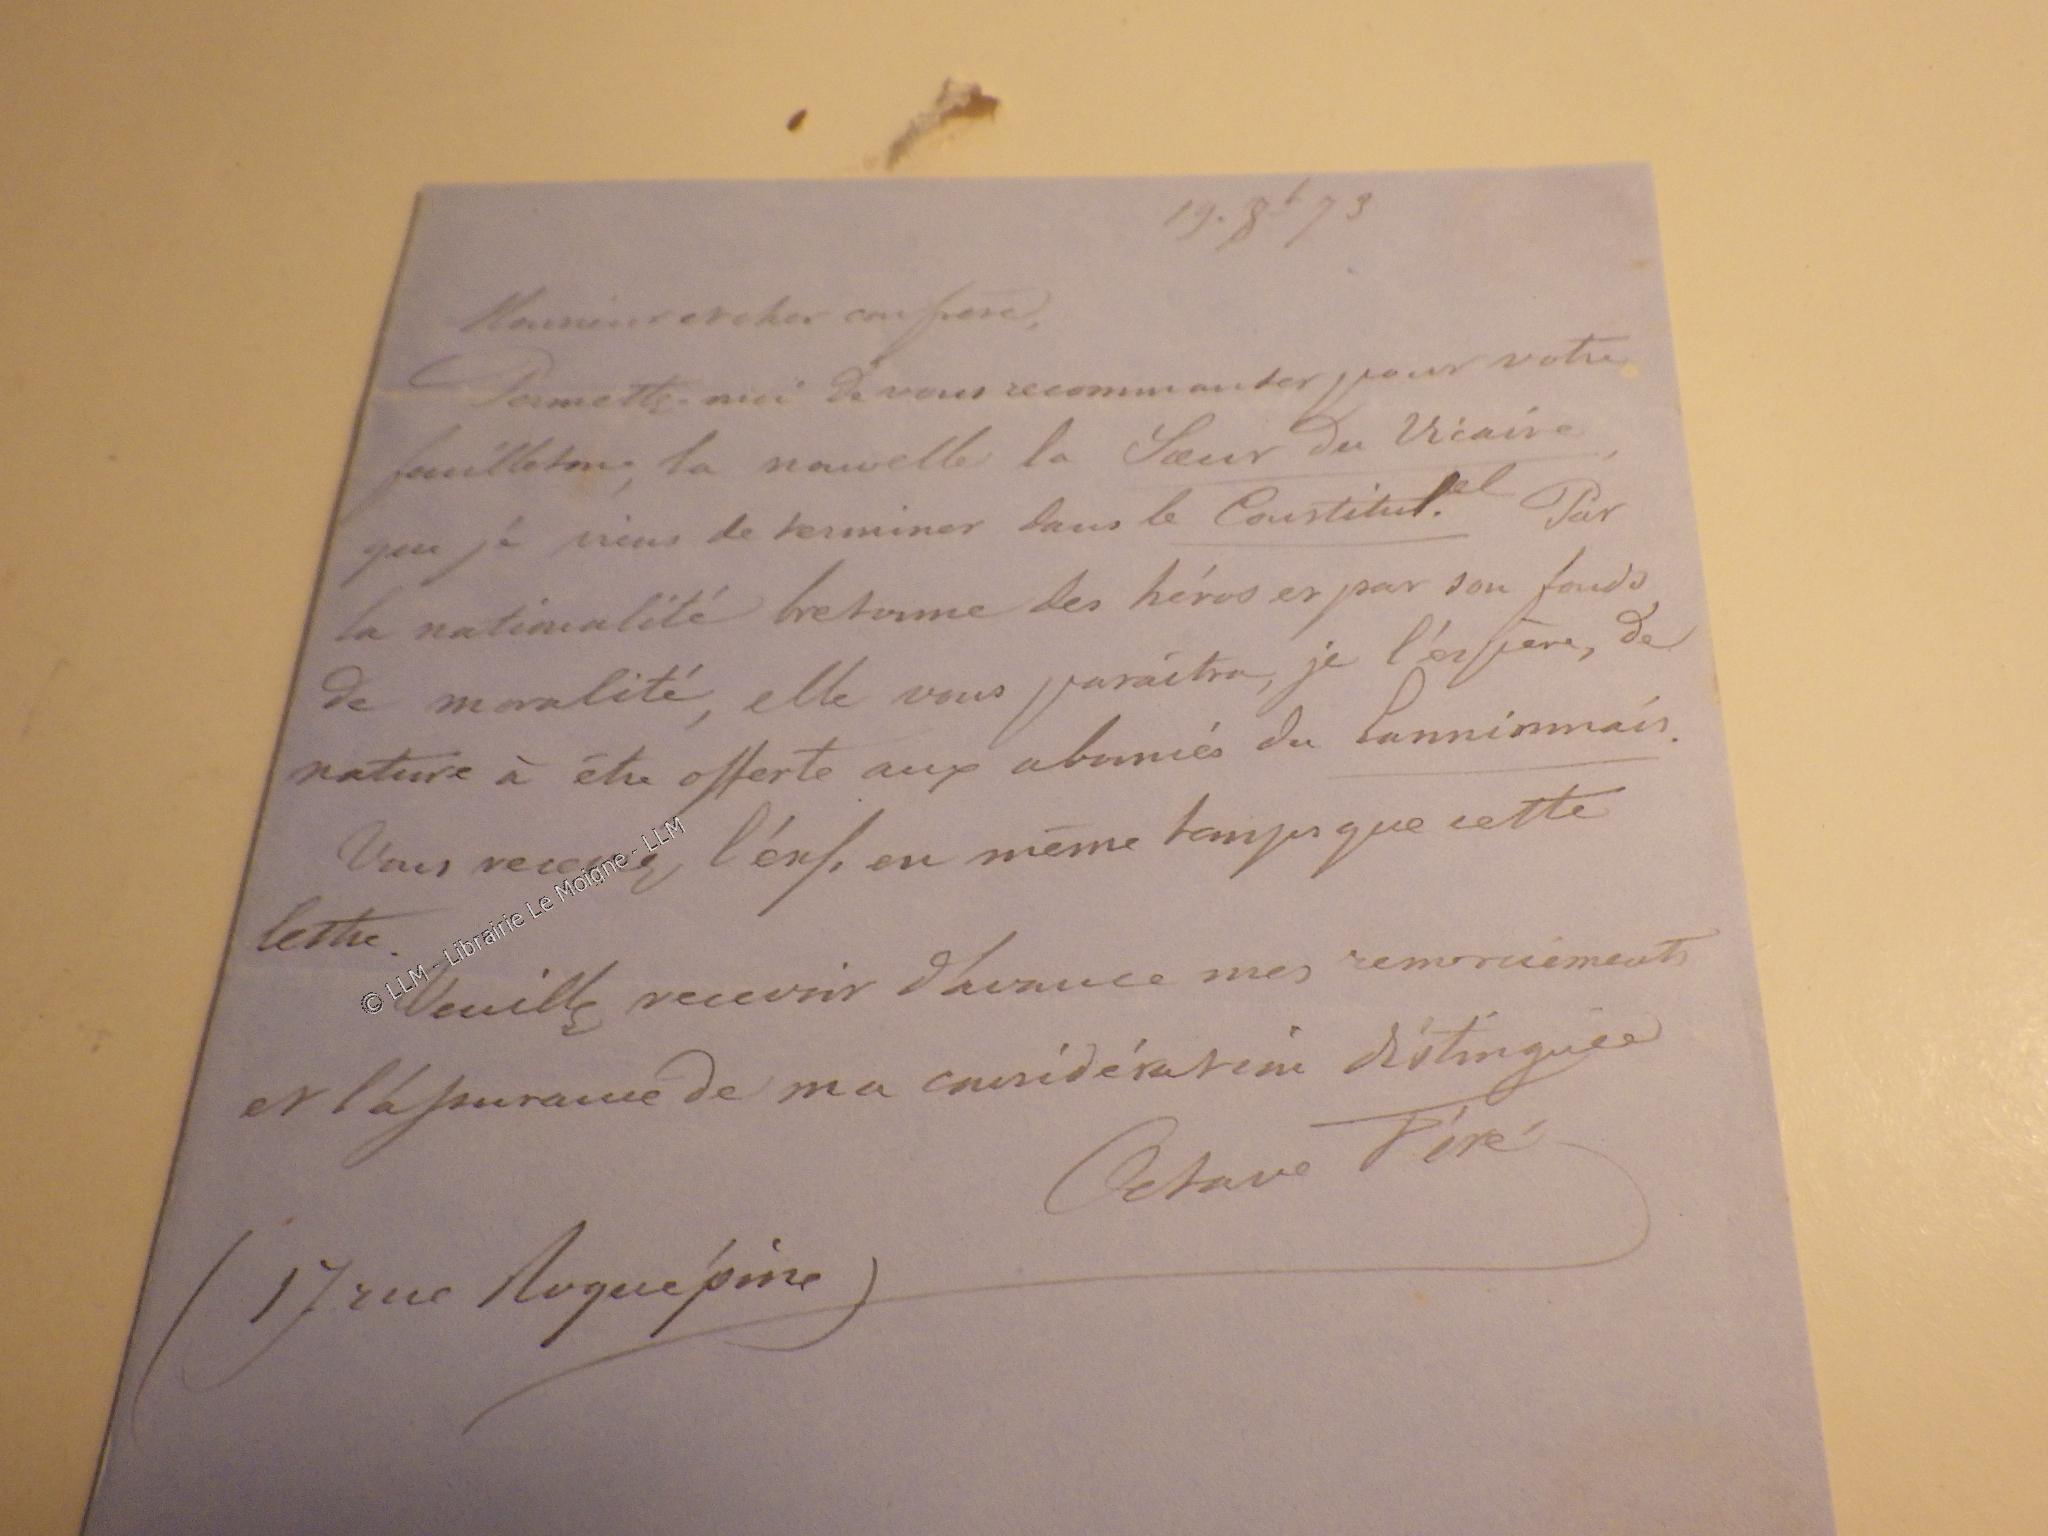 19. 8b 73
Monsieur et cher confrère,
Permettez-moi de vous recommander pour votre
feuilleton, la nouvelle la Sœur du Vicaire,
que je viens de terminer dans le Constitut.el Par
la nationalité bretonne des héros et par son fonds
de moralité, elle vous paraîtra, je l'espère, de
nature à être offerte aux abonnés du Lannionnais.
Vous recevez, l'exp. en même temps que cette
lettre.
Veuillez recevoir d'avance mes remerciements
et l'assurance de ma considération distinguée
Octave Féré
(17 rue Roquépine)
© LLM - Librairie Le Moigne - LLM